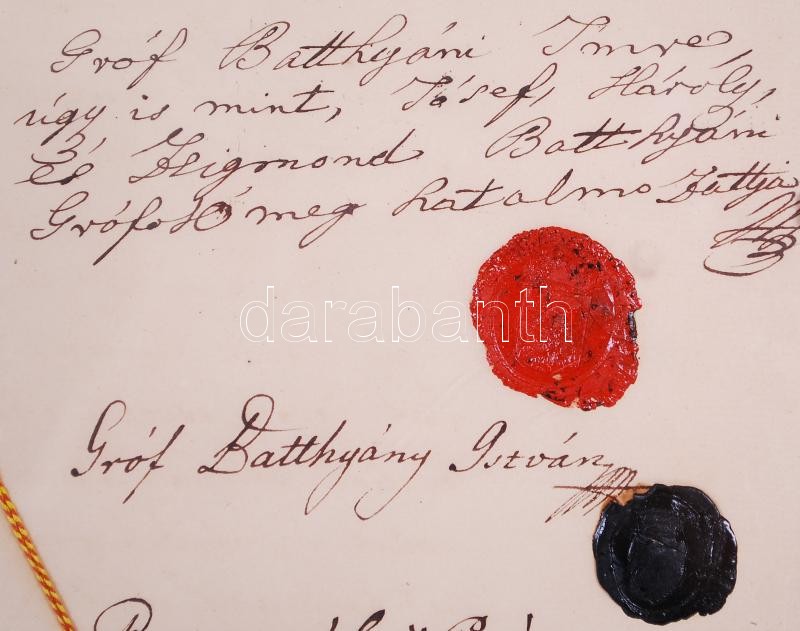 Gróf Batthyáni Imre,
úgy is mint, Jósef, Károly,
és Zsigmond Batthyáni
Grófok meg hatalmazattja
darabanth
Gróf Batthyány István